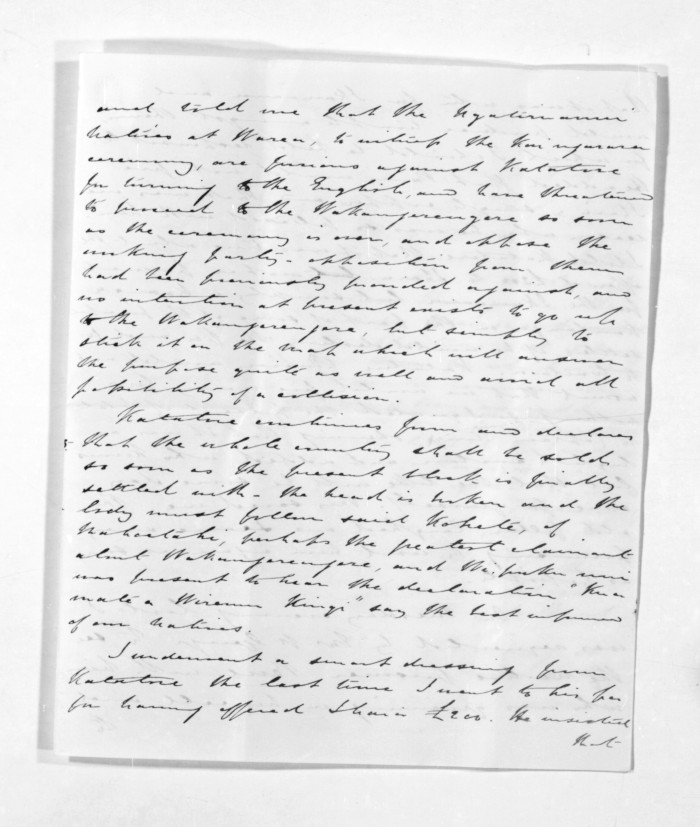 and told me that the Ngatiruanui
natives at Warea, to witness the Kaingarara
ceremony, are furious against Katatore
for turning to the English, and have threatened
to proceed to the Wakangerengere so soon
as the ceremony is over, and oppose the
working party - opposition from them
had been previously guarded against, and
no intention at present exists to go up
to the Wakangerengere, but simply to
stick it on the map which will answer
the purpose quite as well and avoid all
possibility of a collision.
Katatore continues firm and declares
that the whole country shall be sold
so soon as the present block is finally
settled with - the head is broken and the
body must follow said of
perhaps the greatest claimant
about Wakangerengere, and
was present to hear the declaration "Kua
mate a Wiremu Kingi" say the best informed
of our natives.
I underwent a smart dressing from
Katatore the last time I went to his pa
for having offered Ihaia £200. He insisted
that